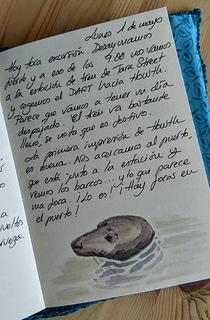 Lunes 1 de mayo
Hoy toca excursión. Desayunamos
pronto y a eso de las 9:00 nos vamos
a la estación de tren de Tara Street
y cogemos el DART hacia Howth.
Parece que vamos a tener un día
despejado. El tren va bastante
lleno, se nota que es festivo.
La primera impresión de Howth
es buena. Nos acercamos al puerto,
que está junto a la estación y
vemos los barcos... y lo que parece
una foca. ¡Lo es! ¡Hay focas en
el puerto!
a
vueltos